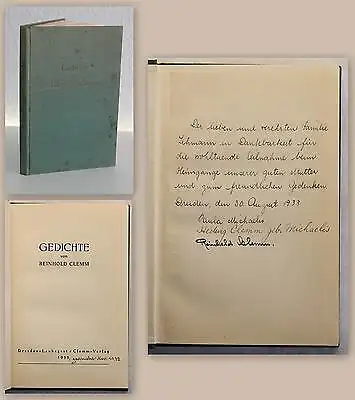 GEDICHTE
von
REINHOLD CLEMM
Dresden-Laubegast / Clemm-Verlag
1933
Der lieben und verehrten Familie
Lehmann in Dankbarkeit für
die wohltuende Teilnahme beim
Heimgange unserer guten Mutter
und zum freundlichen Gedenken
Dresden, den 30. August 1933.
Michaelis
Hedwig Clemm geb. Michaelis
Reinhold Clemm.